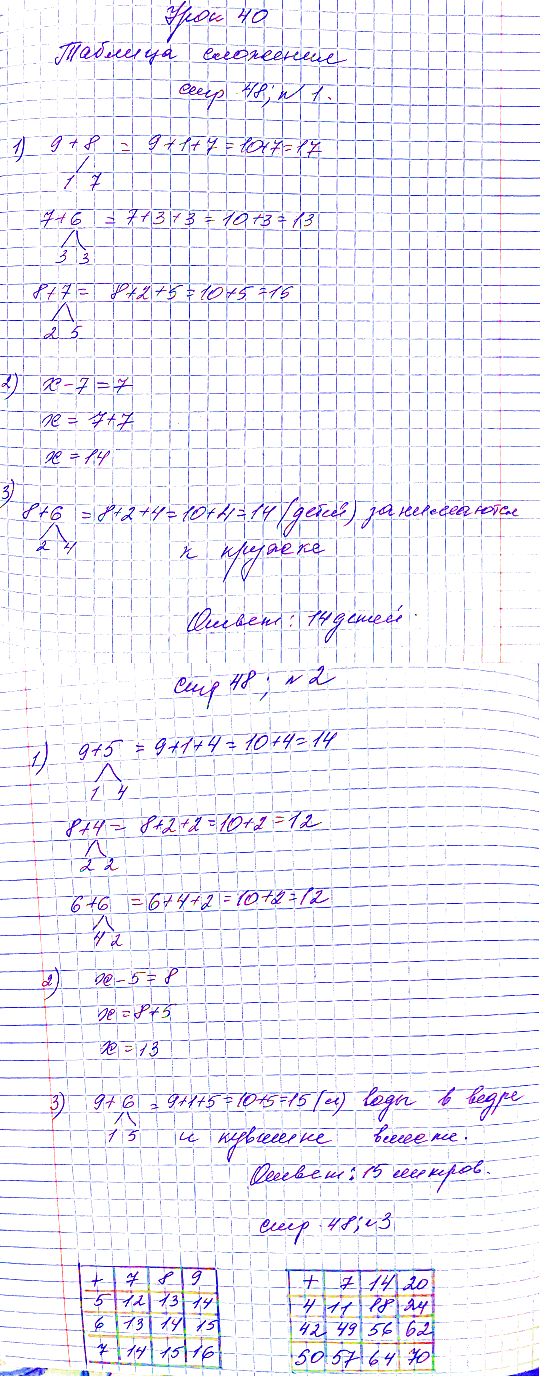 Урок 40
Таблица сложения
стр 48; № 1.
1) 9+8 = 9+1+7=10+7=17
1 7
7+6 = 7+3+3=10+3=13
3 3
8+7= 8+2+5=10+5=15
2 5
2) x-7=7
x= 7+7
x=14
3) 8+6 =8+2+4=10+4=14 (детей) занимаются
2 4 к кружке
Ответ: 14 детей.
стр 48; № 2
1) 9+5 = 9+1+4=10+4=14
1 4
8+4= 8+2+2=10+2=12
2 2
6+6 =6+4+2=10+2=12
4 2
2) x-5=8
x=8+5
x=13
3) 9+6 =9+1+5=10+5=15 (л) воды в ведре
1 5 и кувшине вместе.
Ответ: 15 литров.
стр 48; №3
+ 7 8 9
5 12 13 14
6 13 14 15
7 14 15 16
+ 7 14 20
4 11 18 24
42 49 56 62
50 57 64 70